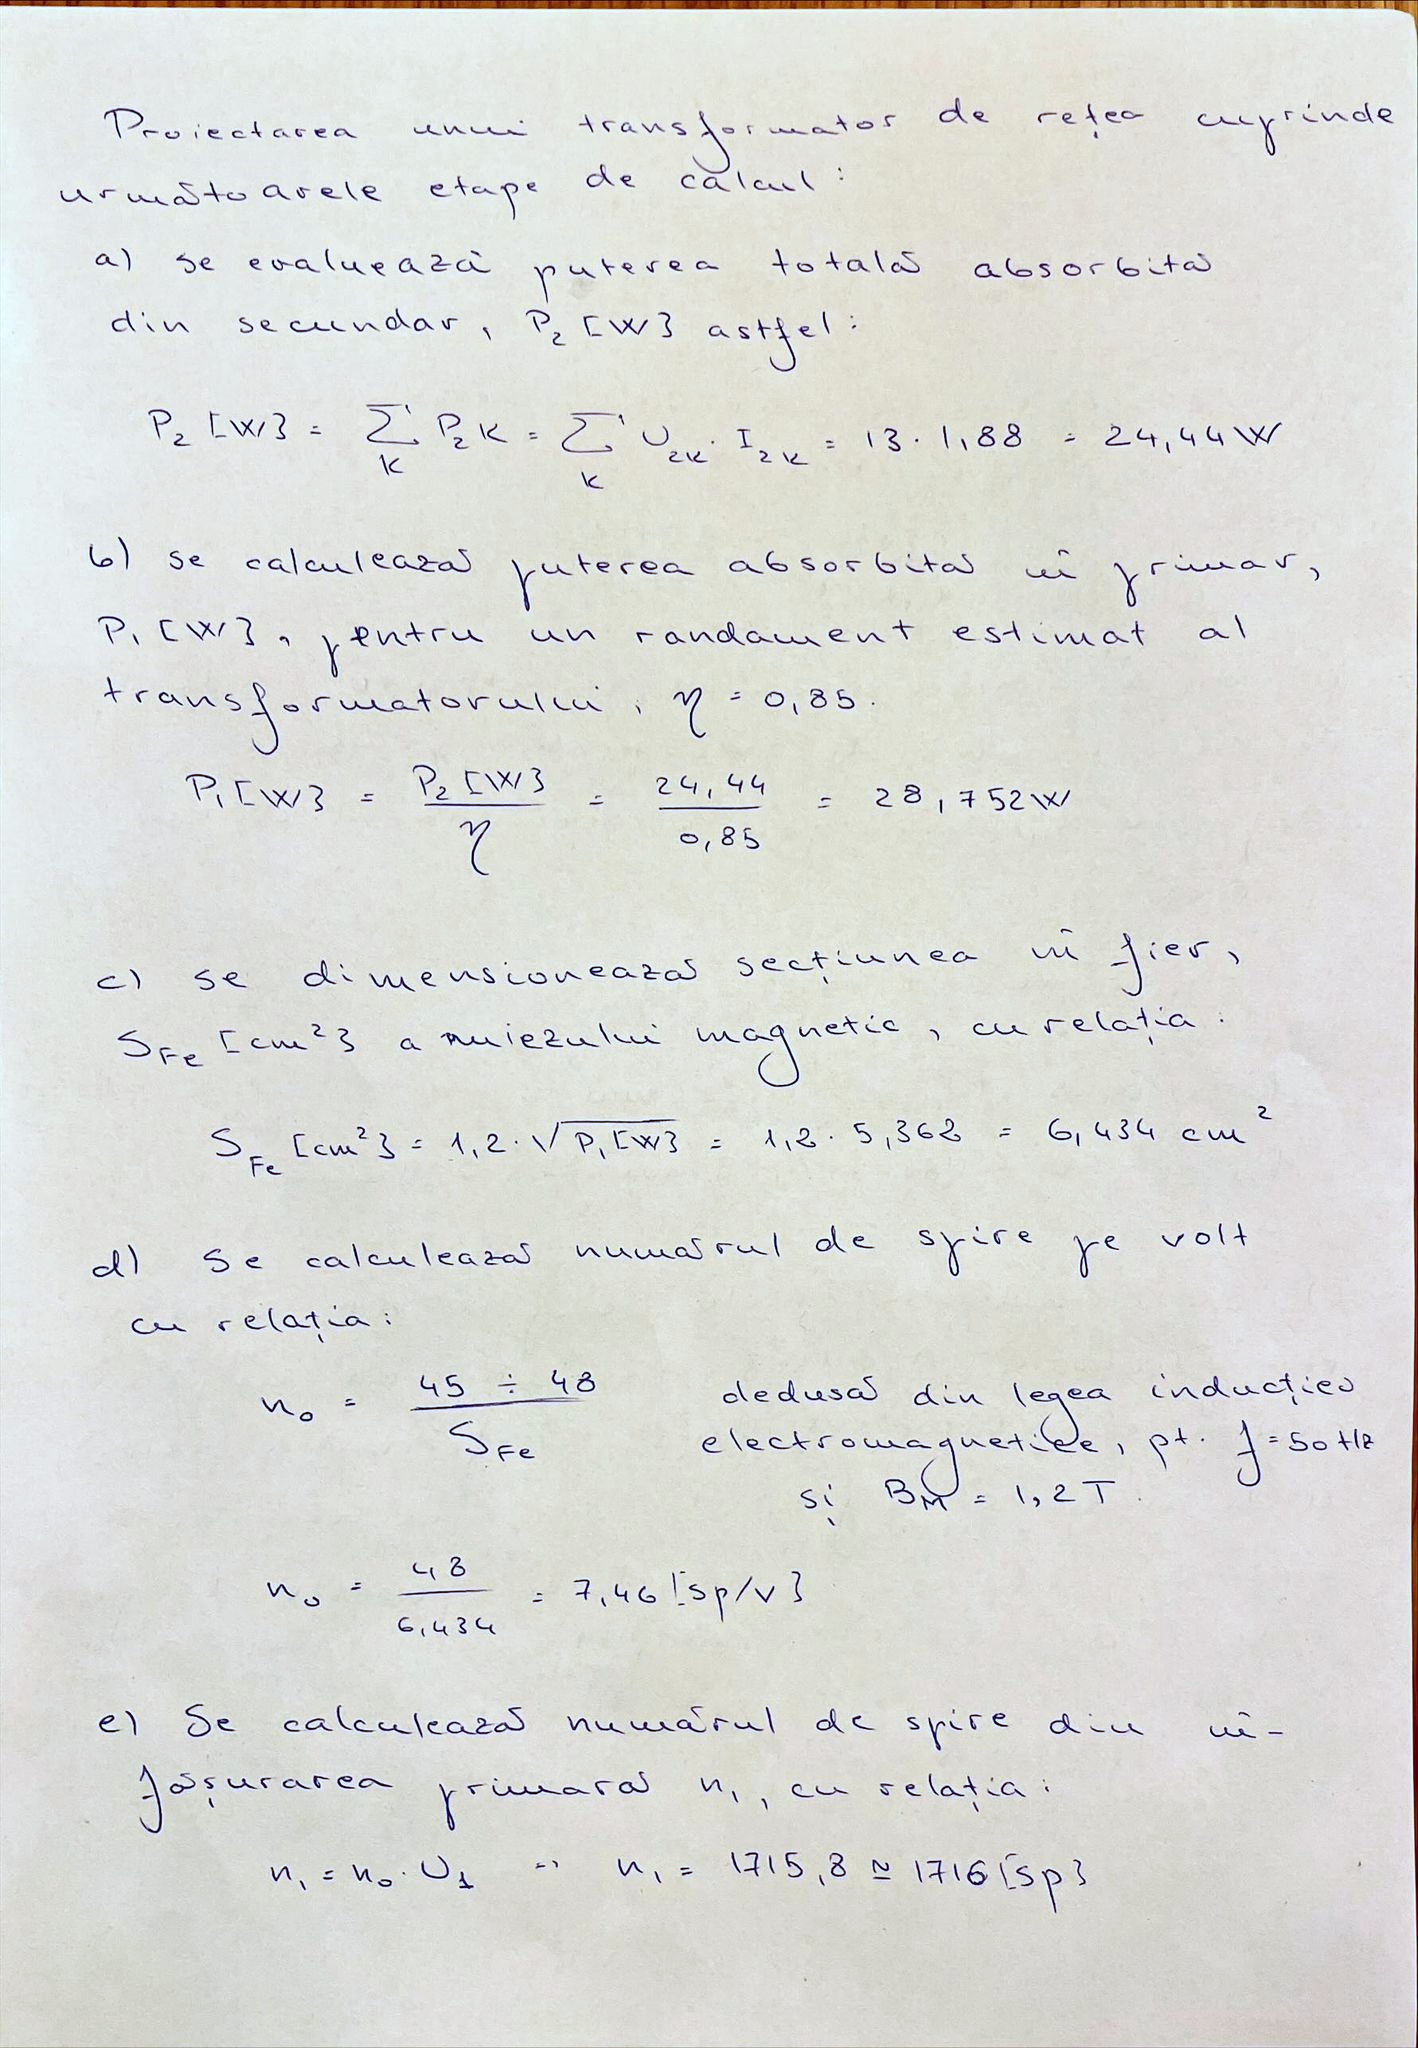 Proiectarea unui transformator de rețea cuprinde
următoarele etape de calcul:
a) se evaluează puterea totală absorbită
din secundar, P₂ [W] astfel:
P₂ [W] = Σ_K P₂K = Σ_K U₂K · I₂K = 13 · 1,88 = 24,44 W
b) se calculează puterea absorbită în primar,
P₁ [W], pentru un randament estimat al
transformatorului, η = 0,85.
P₁ [W] = P₂ [W] / η = 24,44 / 0,85 = 28,752 W
c) se dimensionează secțiunea în fier,
S_Fe [cm²] a miezului magnetic, cu relația:
S_Fe [cm²] = 1,2 · √P₁[W] = 1,2 · 5,362 = 6,434 cm²
d) Se calculează numărul de spire pe volt
cu relația:
n₀ = 45 ÷ 48 / S_Fe dedusă din legea inducției
electromagnetice, pt. f = 50 Hz
și B_M = 1,2 T.
n₀ = 48 / 6,434 = 7,46 [sp/V]
e) Se calculează numărul de spire din în-
fășurarea primară n₁, cu relația:
n₁ = n₀ · U₁ => n₁ = 1715,8 ≅ 1716 [sp]